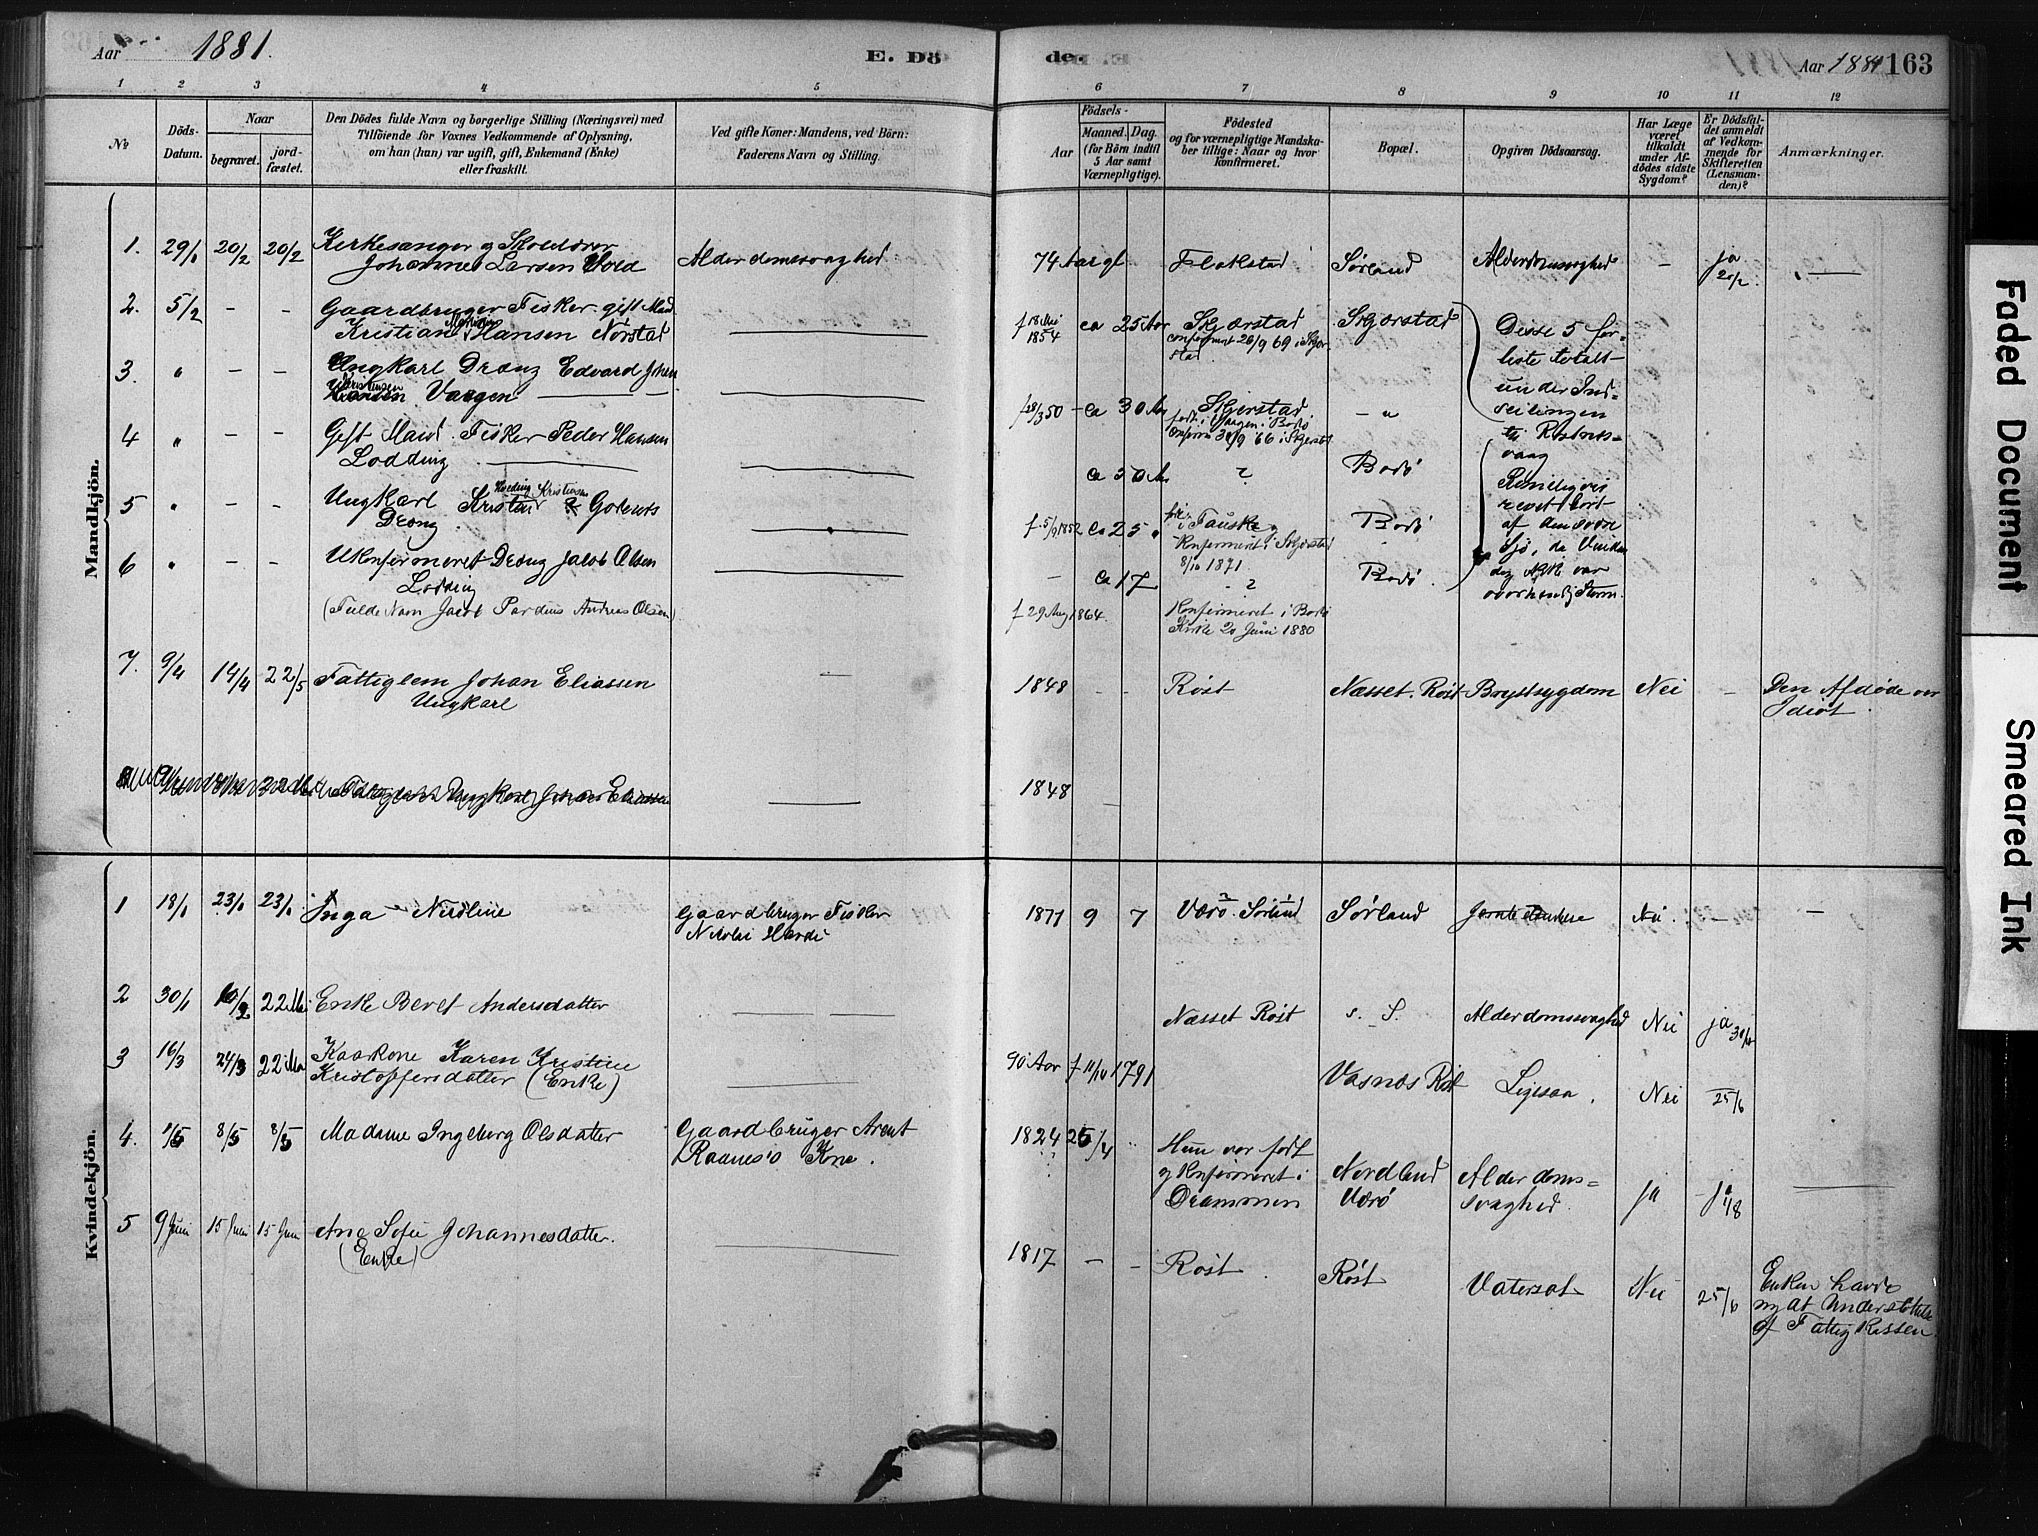 Aar 1881.
E. Dö
de.
Aar 1881 163
1 2 3 4 5 6 7 8 9 10 11 12
№
Döds-Datum.
Naar
begravet.
jord-fæstet.
Den Dödes fulde Navn og borgerlige Stilling (Næringsvei) med
Tilföiende for Voxnes Vedkommende af Oplysning,
om han (hun) var ugift, gift, Enkemand (Enke)
eller fraskilt.
Ved gifte Koner: Mandens, ved Börn:
Faderens Navn og Stilling.
Födsels-
Aar
Maaned. Dag.
(for Börn indtil
5 Aar samt
Værnepligtige).
Födested
og for værnepligtige Mandska-
ber tillige: Naar og hvor
Konfirmeret.
Bopæl.
Opgiven Dödsaarsag.
Har Læge
været
tilkaldt
under Af-
dödes sidste
Sygdom?
Er Dödsfal-
det anmeldt
af Vedkom-
mende for
Skifteretten
(Lensman-
den)?
Anmærkninger.
Mandkjön.
1. 29/1 20/2 20/2 Kirkesanger og Skolelærer
Johannes Larsen Vold
Alderdomssvaghed
74 Aar gl Flakstad Sørland Alderdomssvaghed – ja 20/2
2. 5/2 – – Gaardbruger Fisker gift Mand
Kristian Hansen Nörstad
f 18 Mai 1854 ca 25 Aar Skjerstad
confirmert 26/9 69 i Skjer-
stad
Skjerstad
Disse 5 for-
liste totalt
under Ind-
seilingen
til Røstnes-
vaag
Rimeligvis
revet bort
af den svære
Sjø, da Vinden
dog ikke var
overhendig Storm.
3. " – – Ungkarl Dreng Edvard Johan
Kristensen Vaagen
f 28/3 50 – ca 30 Aar Skjerstad
født i Vaagen i Bodø
Confirm 30/9 66 i Skjerstad
– "
4 " – – Gift Mand. Fisker Peder Hansen
Lodding
ca 30 Aar " Bodø
5 " – – Ungkarl Kristian Gotents
Hveding Kristian
Dreng.
f. 5/9 1852 ca 25 " f. i Fauske og
Konfirmert i Skjerstad
8/10 1871
Bodø
6 " – – Ukonfirmeret Dreng Jacob Olsen
Lodding
(Fulde Navn Jacob Pardens Andreas Olsen)
– ca 17 " Bodø.
f 29 Aug 1864. Konfirmeret i Bodø
Kirke 20 Juni 1880
7. 9/4 14/4 22/5 Fattiglem Johan Eliassen
Ungkarl
1848 – – Røst Næsset. Røst Brystsygdom Nei – Den Afdøde var
Idiot.
1848 –
Kvindekjön.
1 18/1 23/1 23/1 Inga Nicoline
Gaardbruger Fisker
Nicolai Hardi
1877 9 7 Værø. Sørland Sørland Nei. – –
2 30/1 10/2 22 Mai Enke Beret Andersdatter
Næsset Røst s. S. Alderdomssvaghed Nei ja 30/1
3 16/3 24/3 22 Mai Kaarkone Karen Kristine
Kristoffersdatter (Enke)
90 Aar f 11/10 1791 Vasnæs Røst Nei 25/6
4. 1/5 8/5 8/5 Madame Ingeborg Olsdatter
Gaardbruger Arent
Raanes's Kone.
1824 25/4 Hun var født
og Konfirmeret i
Drammen
Nordland
Værø
Alderdoms-
svaghed.
ja ja 1/8
5 9 Juni 15 Juni 15 Juni Ane Sofie Johannesdatter.
(Enke)
1817 – – Røst. Røst Vatersot Nei 25/6 Enken havde
nydt Understøttelse
af Fattigkassen.
Faded Document
Smeared Ink